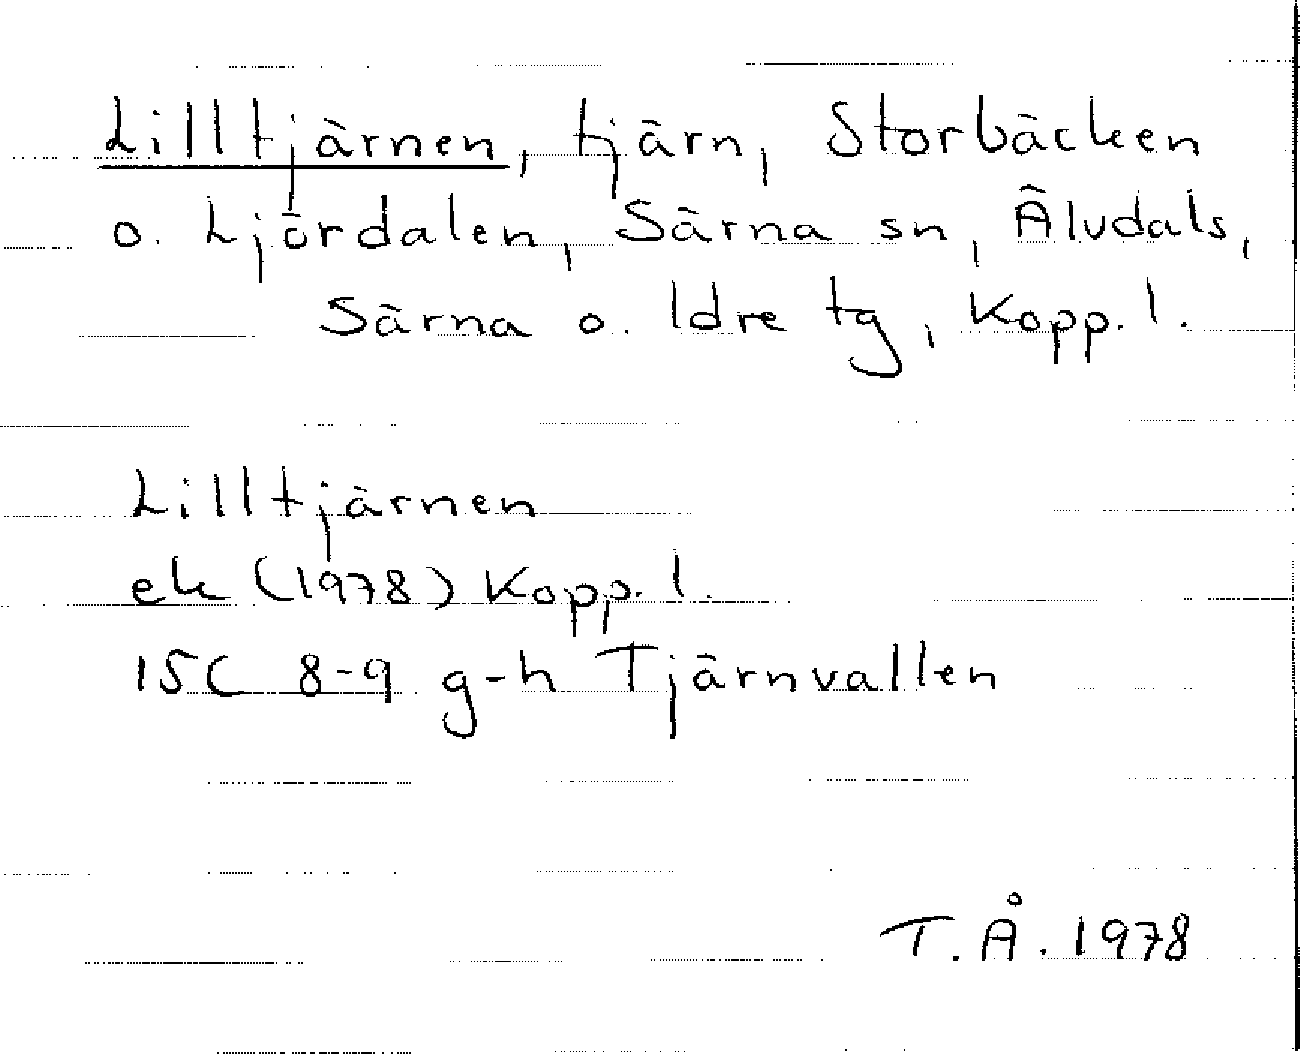 Lilltjärnen, tjärn, Storbäcken
o. Ljördalen, Särna sn, Älvdals,
Särna o. Idre tg, Kopp. l.
Lilltjärnen
ek (1978) Kopp. l.
15C 8-9 g-h Tjärnvallen
T. Å. 1978